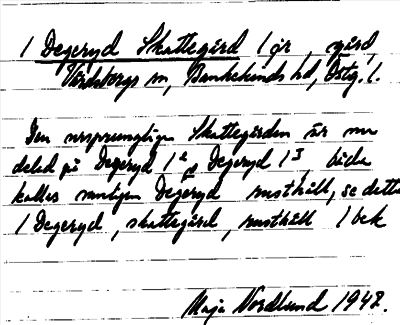 1 Degeryd Skattegård 1 gr, gård,
Vårdsbergs sn, Bankekinds hd, Östg. l.
Den ursprungliga Skattegården är nu
delad på Degeryd 1² o Degeryd 1³, båda
kallas numligen Degeryd rusthåll, se detta
1 Degeryd, skattegård, rusthåll 1 bek
Maja Nordlund 1948.